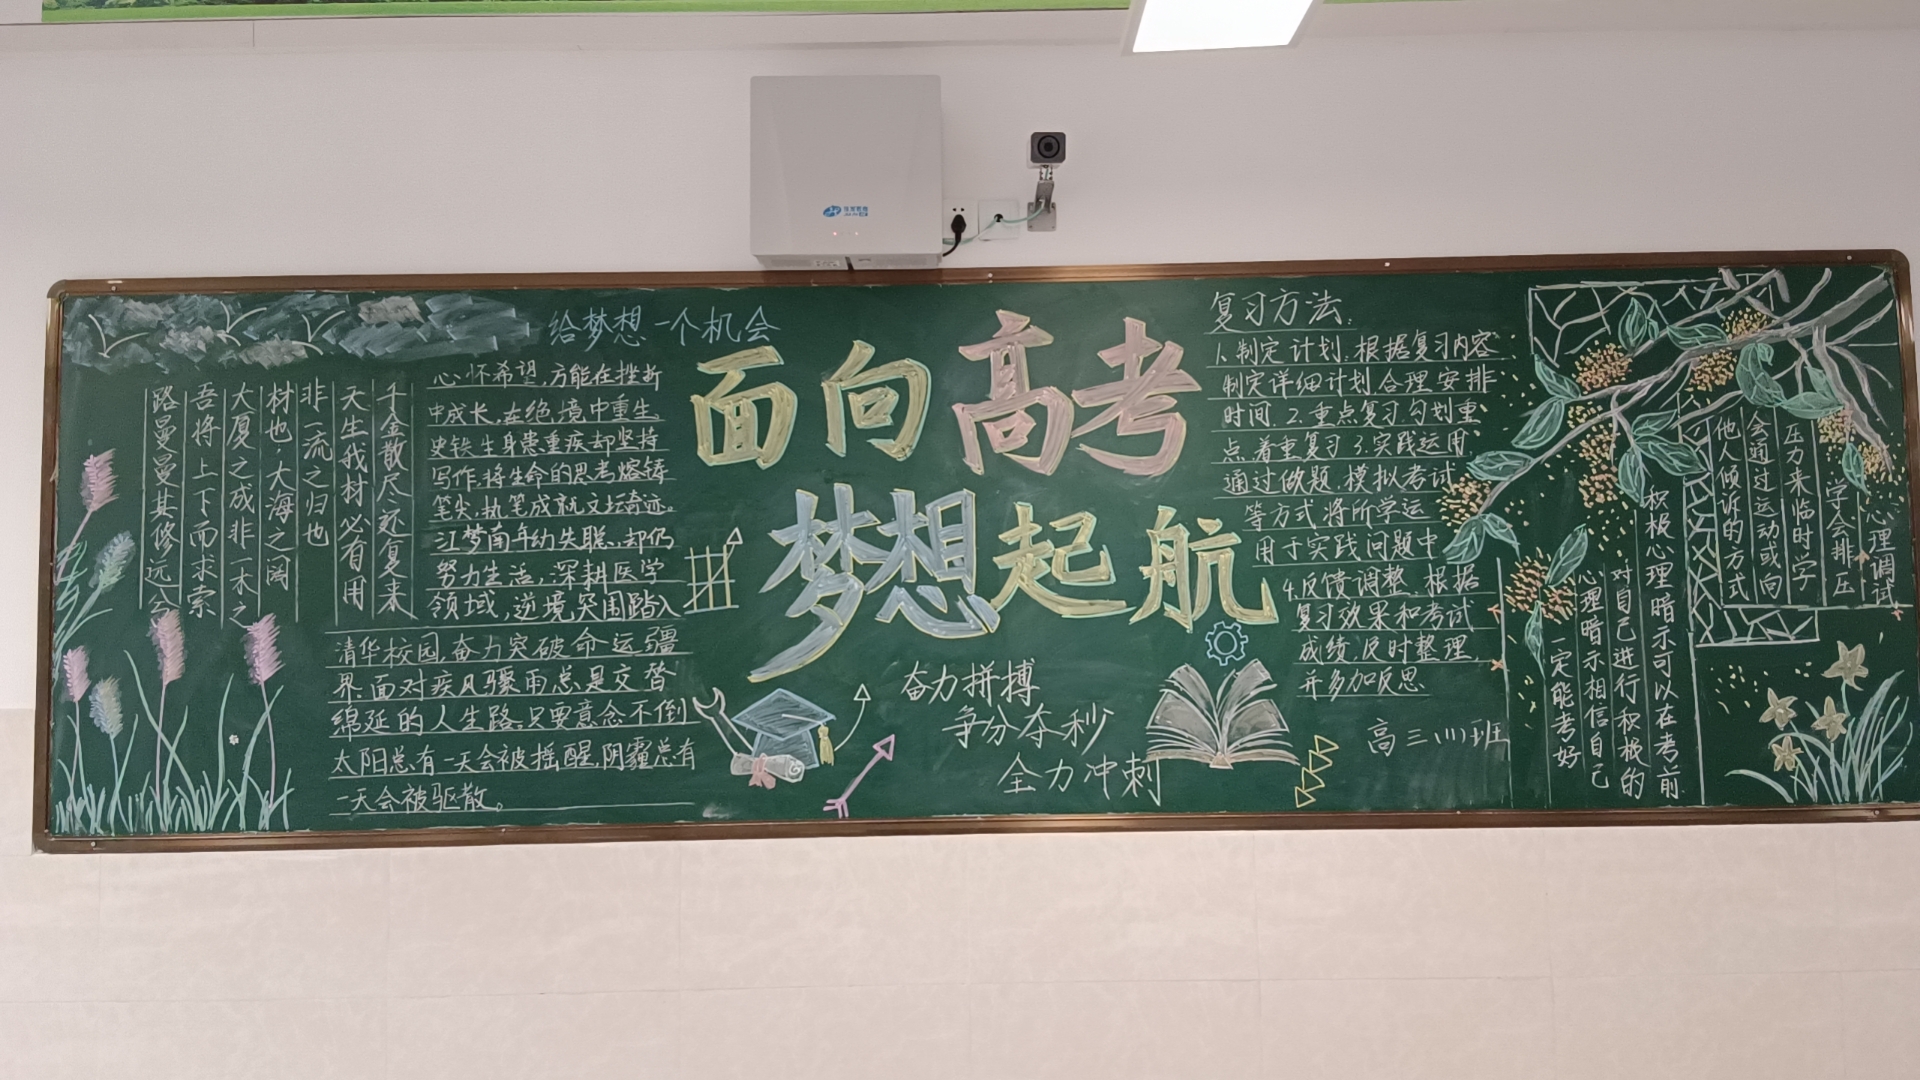 给梦想一个机会
心怀希望,方能在挫折
中成长,在绝境中重生。
史铁生身患重疾却坚持
写作,将生命的思考熔铸
笔尖,执笔成就文坛奇迹。
江梦南年幼失聪,却仍
努力生活,深耕医学
领域,逆境突围踏入
清华校园,奋力突破命运疆
界.面对疾风骤雨总是交替
绵延的人生路,只要意念不倒
太阳总有一天会被摇醒,阴霾总有
一天会被驱散。
千金散尽还复来
天生我材必有用
非一流之归也
材也,大海之阔
大厦之成非一木之
吾将上下而求索
路曼曼其修远兮
面向高考
梦想起航
奋力拼搏
争分夺秒
全力冲刺
复习方法:
1.制定计划.根据复习内容
制定详细计划.合理安排
时间.2.重点复习勾划重
点着重复习3.实践运用
通过做题.模拟考试
等方式将所学运
用于实践问题中
4.反馈调整.根据
复习效果和考试
成绩,及时整理,
并多加反思
高三(11)班
心理调试
学会排压
压力来临时学
会通过运动或向
他人倾诉的方式
积极心理暗示可以在考前
对自己进行积极的
心理暗示相信自己
一定能考好